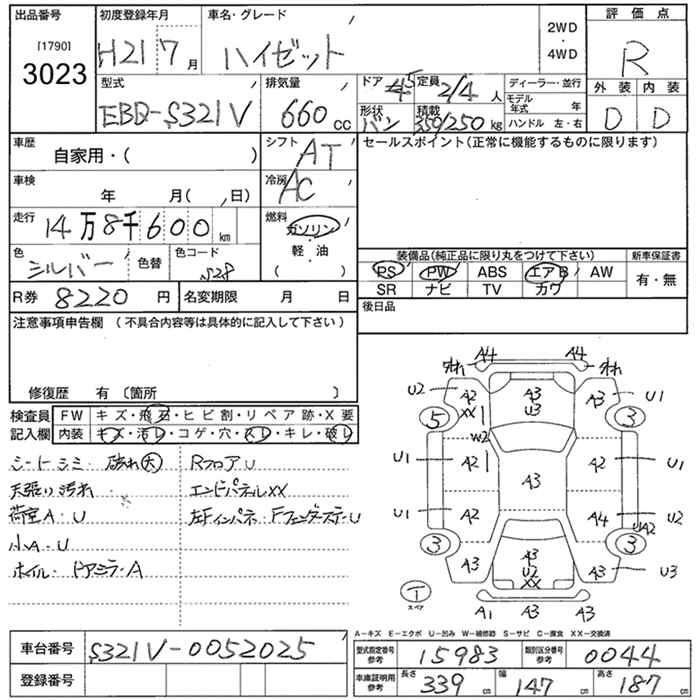 出品番号
[1790]
3023
初度登録年月
H21 7月
車名・グレード
ハイゼット
2WD
・
4WD
評価点
R
型式
EBD-S321V
排気量
660 cc
ドア
45
定員
2/4 人
形状
バン
積載
350/250 kg
ディーラー・並行
モデル年式 年
ハンドル 左・右
外装 内装
D D
車歴
自家用・( )
シフト
AT
車検
年 月( , 日)
冷房
AC
走行
14万8千600 km
燃料
ガソリン
・
軽・油
( )
色
シルバー
色替
色コード
S28
R券 8220円
名変期限 月 日
セールスポイント(正常に機能するものに限ります)
装備品(純正品に限り丸をつけて下さい)
PS PW ABS エアB AW
SR ナビ TV カワ
新車保証書
有・無
後日品
注意事項申告欄 (不具合内容等は具体的に記入して下さい)
修復歴 有〔箇所 〕
検査員記入欄
FW キズ・飛石・ヒビ割・リペア跡・X要
内装 キズ・汚レ・コゲ・穴・スレ・キレ・破レ
シートシミ・破れ大
天張り汚れ
荷室A・U
小A・U
ホイル・ドアミラーA
RフロアU
エンドパネルXX
左Fインパネ・FフェンダーステーU
A4 A4
われ われ
U2 A2 A3 U3 A3 U1
XX
5 3
W2
U1 A2 A3 A2 U1
U1 A2 A4 U1
UA2
3 3
A3 A3 U2 XX A3 U3
T
スペア
A1 A3 A3
A－キズ E－エクボ U－凹み W－補修跡 S－サビ C－腐食 XX－交換済
車台番号 S321V-0052025
登録番号
型式指定番号 参考 15983
類別区分番号 参考 0044
車庫証明用 参考
長さ 339 cm
幅 147 cm
高さ 187 cm